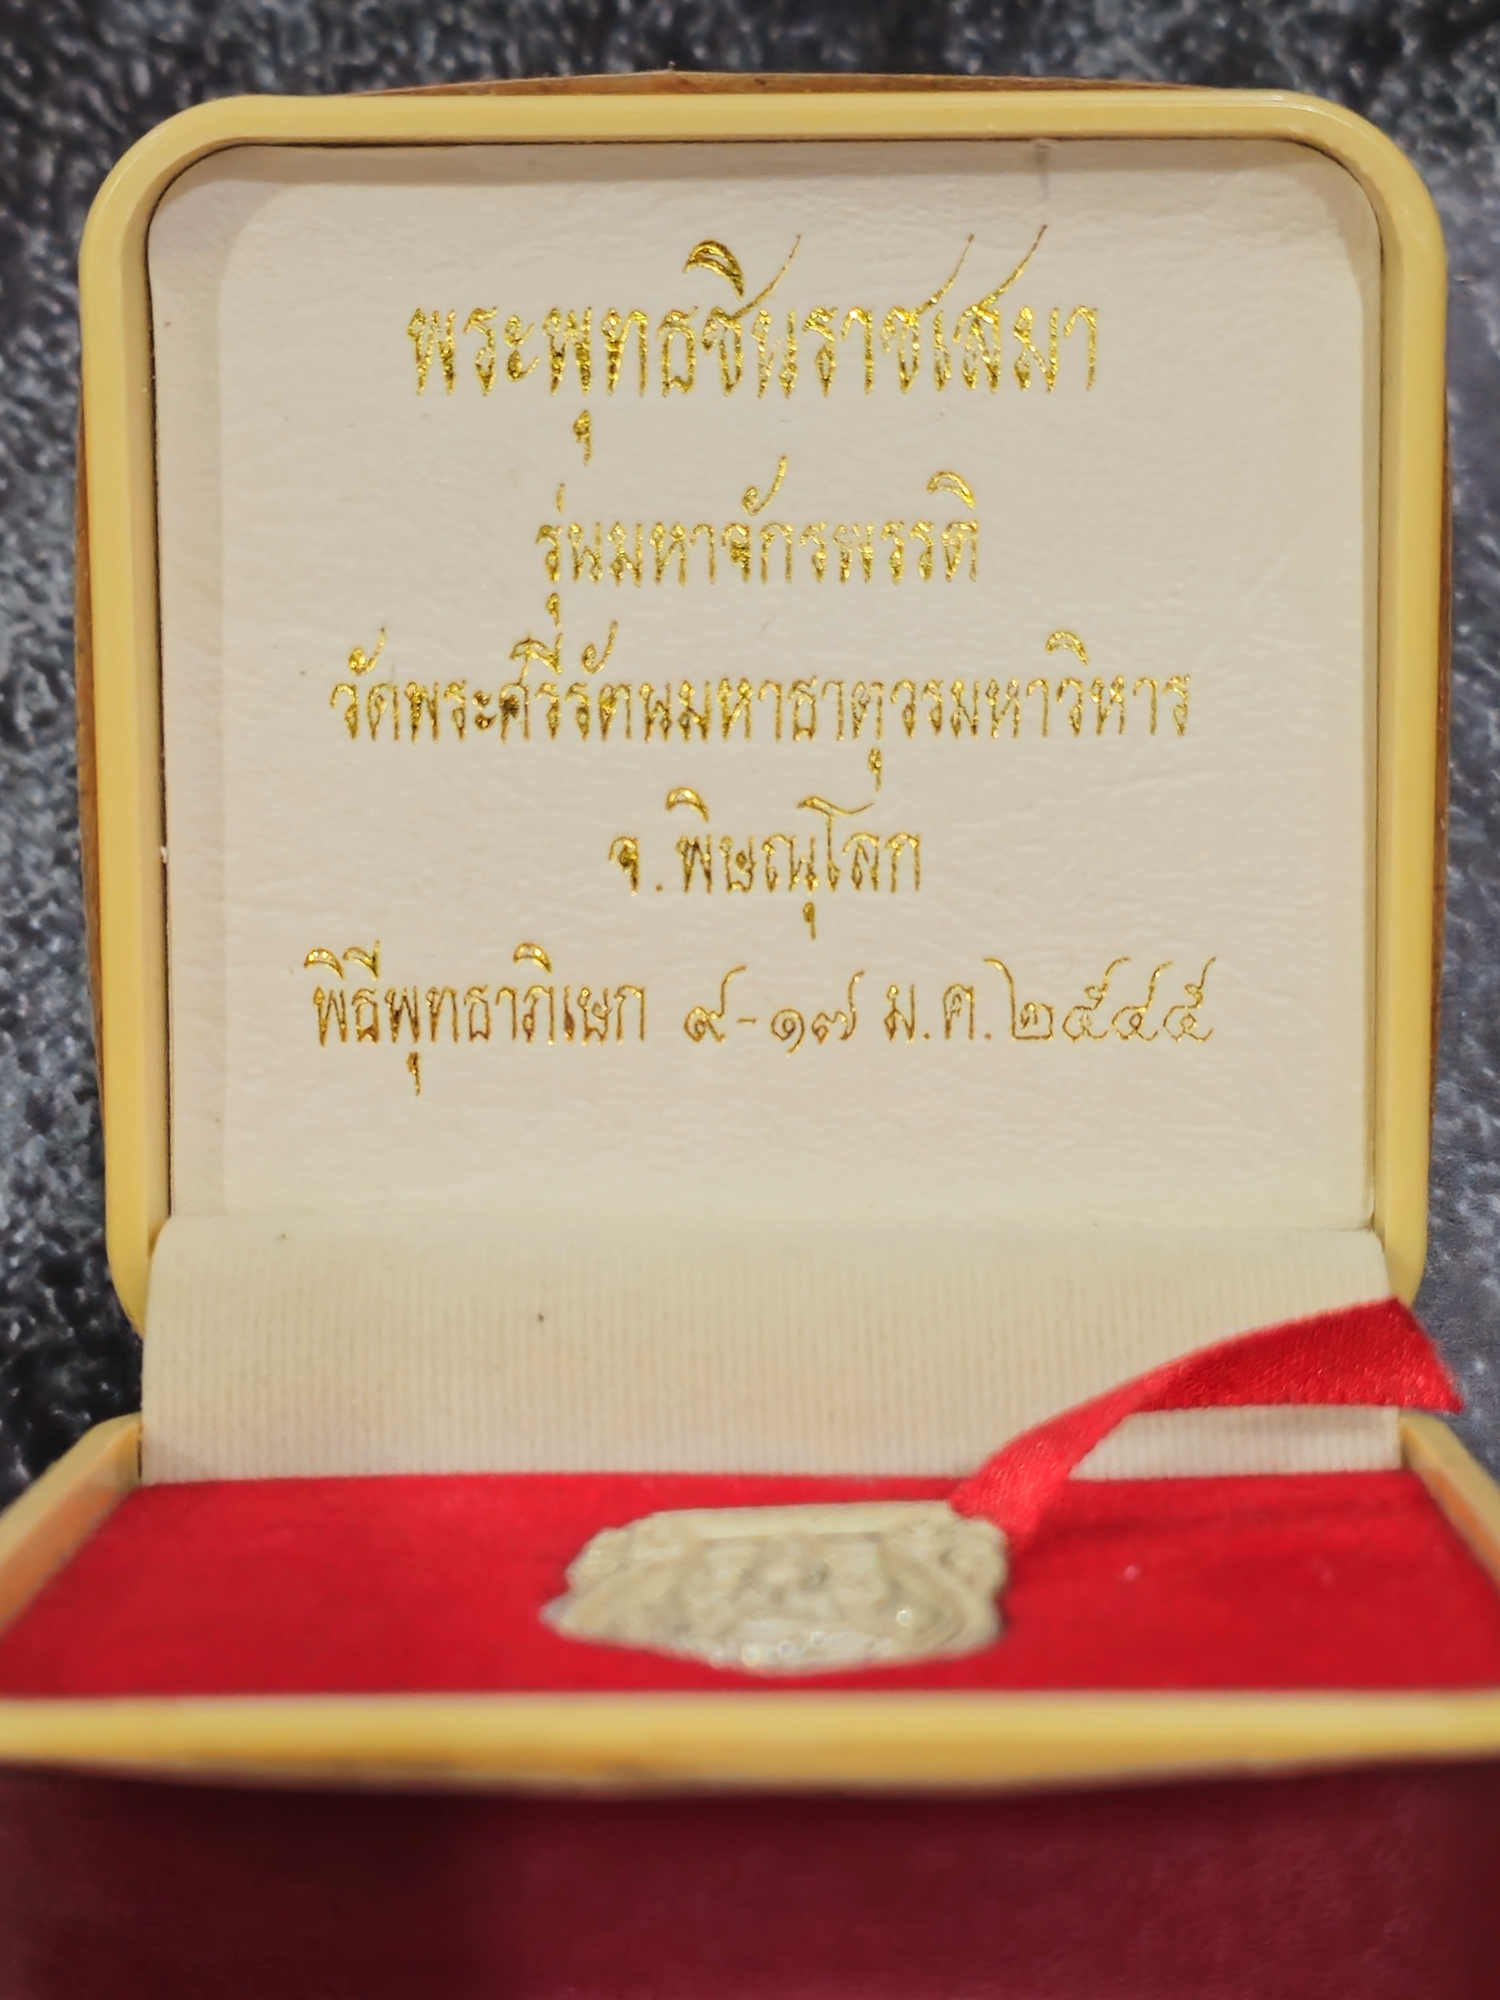 พระพุทธชินราชเสมา
รุ่นมหาจักรพรรดิ
วัดพระศรีรัตนมหาธาตุวรมหาวิหาร
จ.พิษณุโลก
พิธีพุทธาภิเษก ๙-๑๗ ม.ค.๒๕๔๕